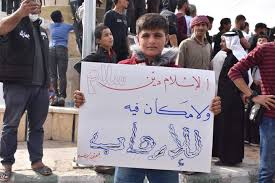 الإسلام دين سلام
ولا مكان فيه
للإرهاب